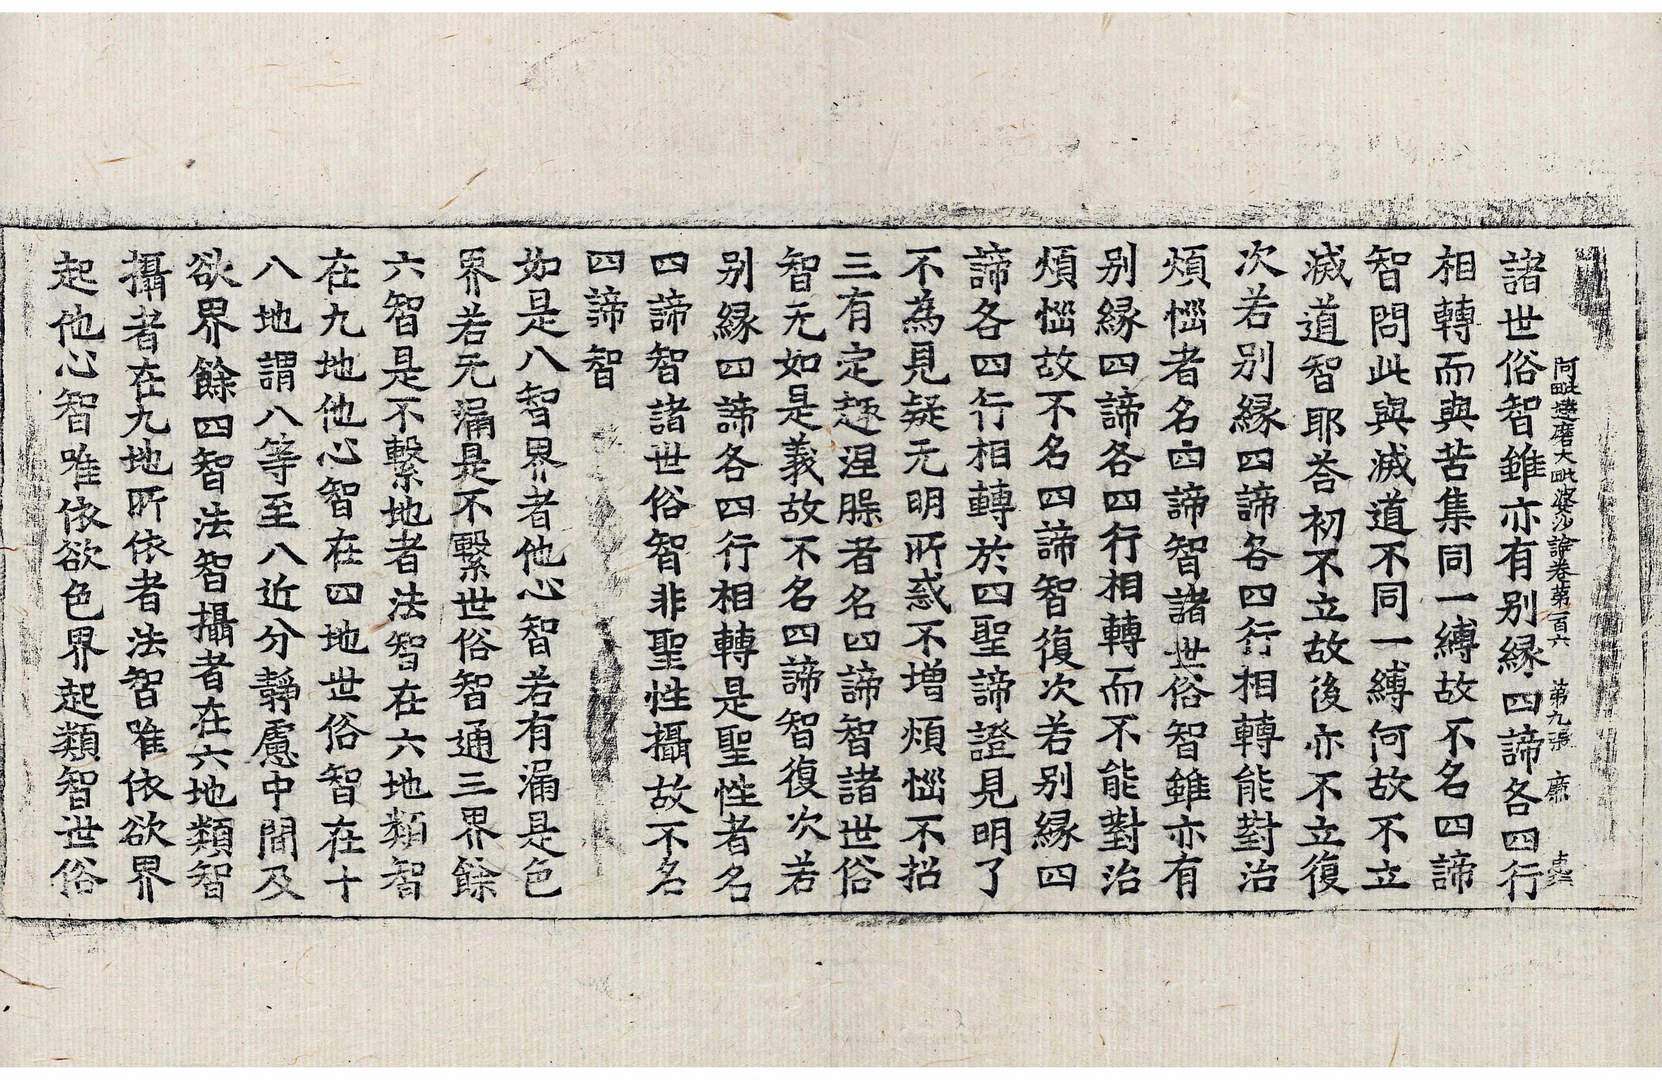 阿毗達磨大毗婆沙論卷第一百六 第九張 廉
諸世俗智雖亦有别緣四諦各四行
相轉而與苦集同一縛故不名四諦
智問此與滅道不同一縛何故不立
滅道智耶荅初不立故後亦不立復
次若别緣四諦各四行相轉能對治
煩惱者名四諦智諸世俗智雖亦有
别緣四諦各四行相轉而不能對治
煩惱故不名四諦智復次若别緣四
諦各四行相轉於四聖諦證見明了
不為見疑无明所惑不增煩惱不招
三有定趣涅槃者名四諦智諸世俗
智无如是義故不名四諦智復次若
别緣四諦各四行相轉是聖性者名
四諦智諸世俗智非聖性攝故不名
四諦智
如是八智界者他心智若有漏是色
界若无漏是不繫世俗智通三界餘
六智是不繫地者法智在六地類智
在九地他心智在四地世俗智在十
八地謂八等至八近分靜慮中間及
欲界餘四智法智攝者在六地類智
攝者在九地所依者法智唯依欲界
起他心智唯依欲色界起類智世俗